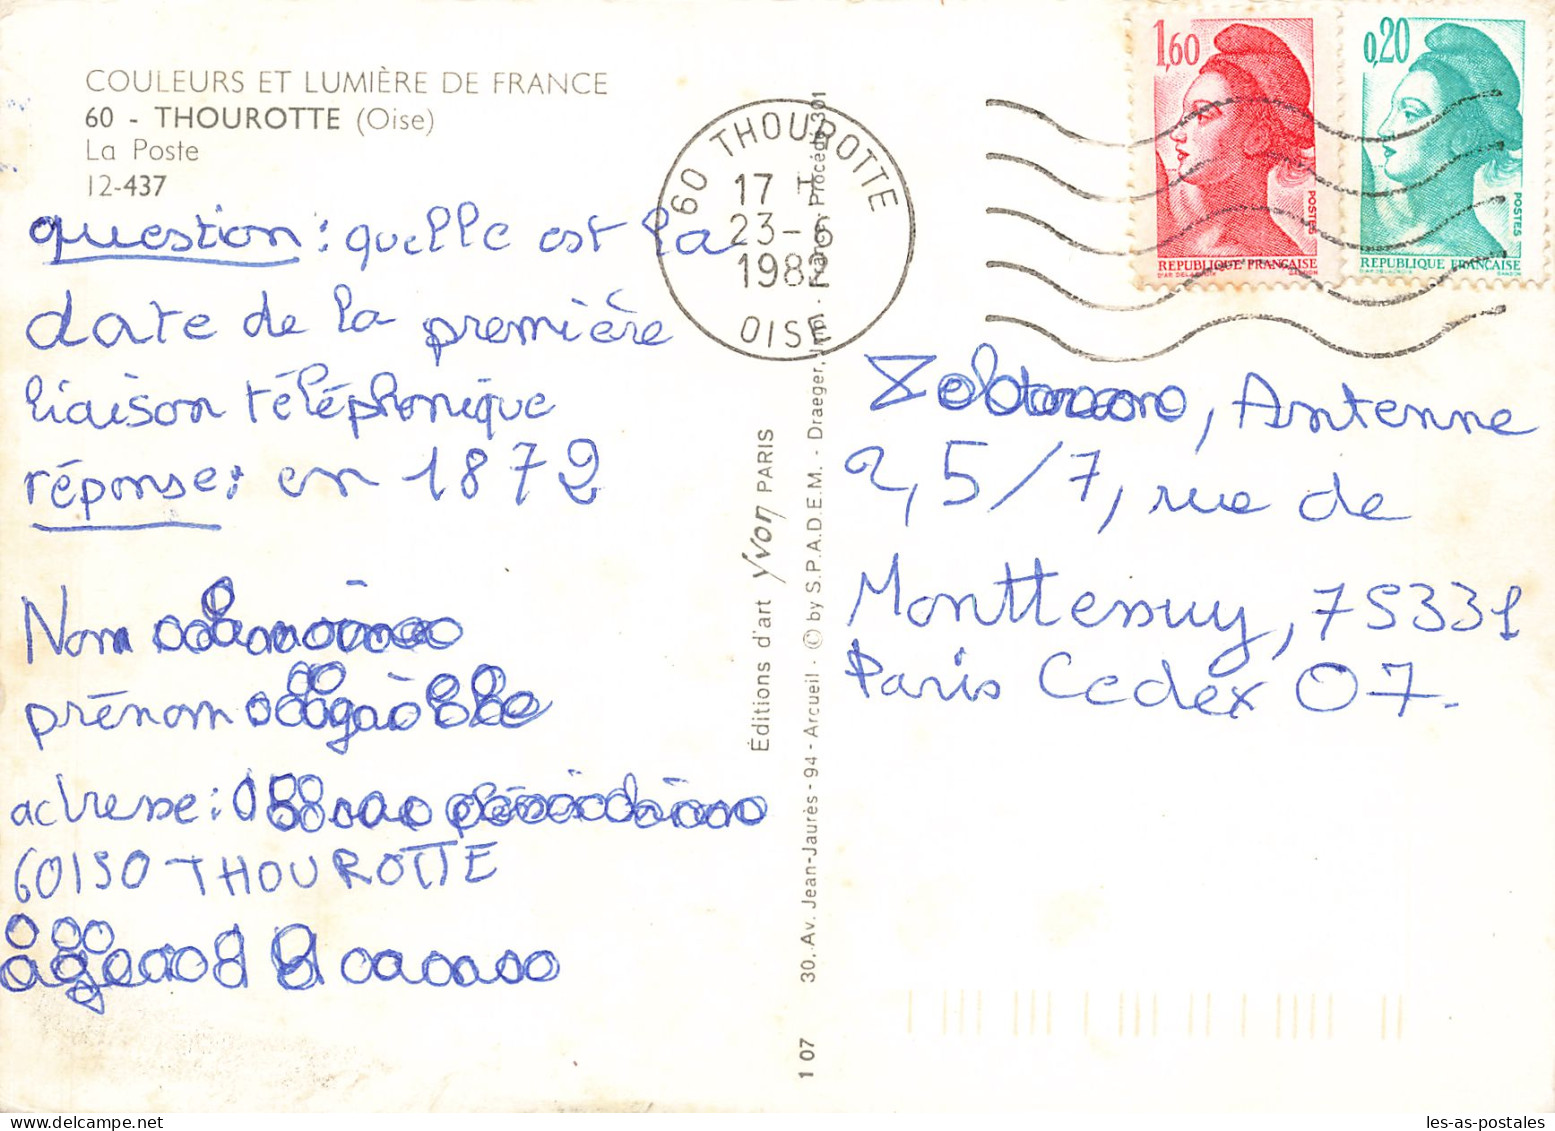 COULEURS ET LUMIÈRE DE FRANCE
60 - THOUROTTE (Oise)
La Poste
12-437
question : quelle est la
date de la première
liaison téléphonique
réponse : en 1872
Nom
prénom
adresse :
60150 THOUROTTE
60 THOUROTTE
17 H
23-6
1982
OISE
1,60
POSTES
REPUBLIQUE FRANÇAISE
0,20
POSTES
REPUBLIQUE FRANÇAISE
Antenne
2, 5/7, rue de
Monttessuy, 75331
Paris Cedex 07.
Éditions d'art Yvon PARIS
30, Av. Jean-Jaurès - 94 - Arcueil - © by S.P.A.D.E.M. - Draeger, Imp. - Procédé 301
1 07
les-as-postales